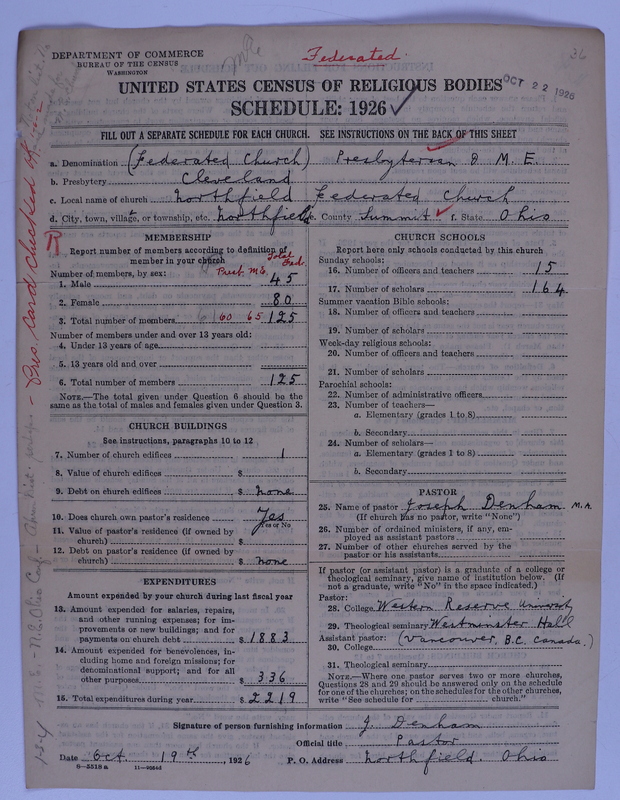 DEPARTMENT OF COMMERCE
BUREAU OF THE CENSUS
WASHINGTON
Federated
36
UNITED STATES CENSUS OF RELIGIOUS BODIES
OCT 22 1926
SCHEDULE: 1926
FILL OUT A SEPARATE SCHEDULE FOR EACH CHURCH. SEE INSTRUCTIONS ON THE BACK OF THIS SHEET
a. Denomination (Federated Church) Presbyterian & M. E.
b. Presbytery Cleveland
c. Local name of church Northfield Federated Church
d. City, town, village, or township, etc. Northfield e. County Summit f. State Ohio
MEMBERSHIP
Report number of members according to definition of member in your church
Total Fed.
Number of members, by sex: Pres. M.E.
1. Male 45
2. Female 80
3. Total number of members 60 65 125
Number of members under and over 13 years old:
4. Under 13 years of age
5. 13 years old and over
6. Total number of members 125
NOTE.—The total given under Question 6 should be
same as the total of males and females given under Question 3.
CHURCH BUILDINGS
See instructions, paragraphs 10 to 12
7. Number of church edifices 1
8. Value of church edifices $
9. Debt on church edifices $ none
10. Does church own pastor's residence Yes
Yes or No
11. Value of pastor's residence (if owned by
church) $
12. Debt on pastor's residence (if owned by
church) $ none
EXPENDITURES
Amount expended by your church during last fiscal year
13. Amount expended for salaries, repairs,
and other running expenses; for im-
provements or new buildings; and for
payments on church debt $ 1883
14. Amount expended for benevolences, in-
cluding home and foreign missions; for
denominational support; and for all
other purposes $ 336
15. Total expenditures during year $ 2219
CHURCH SCHOOLS
Report here only schools conducted by this church
Sunday schools:
16. Number of officers and teachers 15
17. Number of scholars 164
Summer vacation Bible schools:
18. Number of officers and teachers
19. Number of scholars
Week-day religious schools:
20. Number of officers and teachers
21. Number of scholars
Parochial schools:
22. Number of administrative officers
23. Number of teachers—
a. Elementary (grades 1 to 8)
b. Secondary
24. Number of scholars—
a. Elementary (grades 1 to 8)
b. Secondary
PASTOR
25. Name of pastor Joseph Denham M.A.
(If church has no pastor, write "None")
26. Number of ordained ministers, if any, em-
ployed as assistant pastors
27. Number of other churches served by the
pastor or his assistants
If pastor (or assistant pastor) is a graduate of a college or
theological seminary, give name of institution below. (If
not a graduate, write "No" in the space indicated.)
Pastor:
28. College Western Reserve University
29. Theological seminary Westminster Hall
Assistant pastor: (Vancouver, B.C. Canada.)
30. College
31. Theological seminary
NOTE.—Where one pastor serves two or more churches,
Questions 28 and 29 should be answered only on the schedule
for one of the churches; on the schedules for the other churches,
write "See schedule for church."
Signature of person furnishing information J. Denham
Official title Pastor
Date Oct. 19th, 1926 P. O. Address Northfield. Ohio
8—5518 a